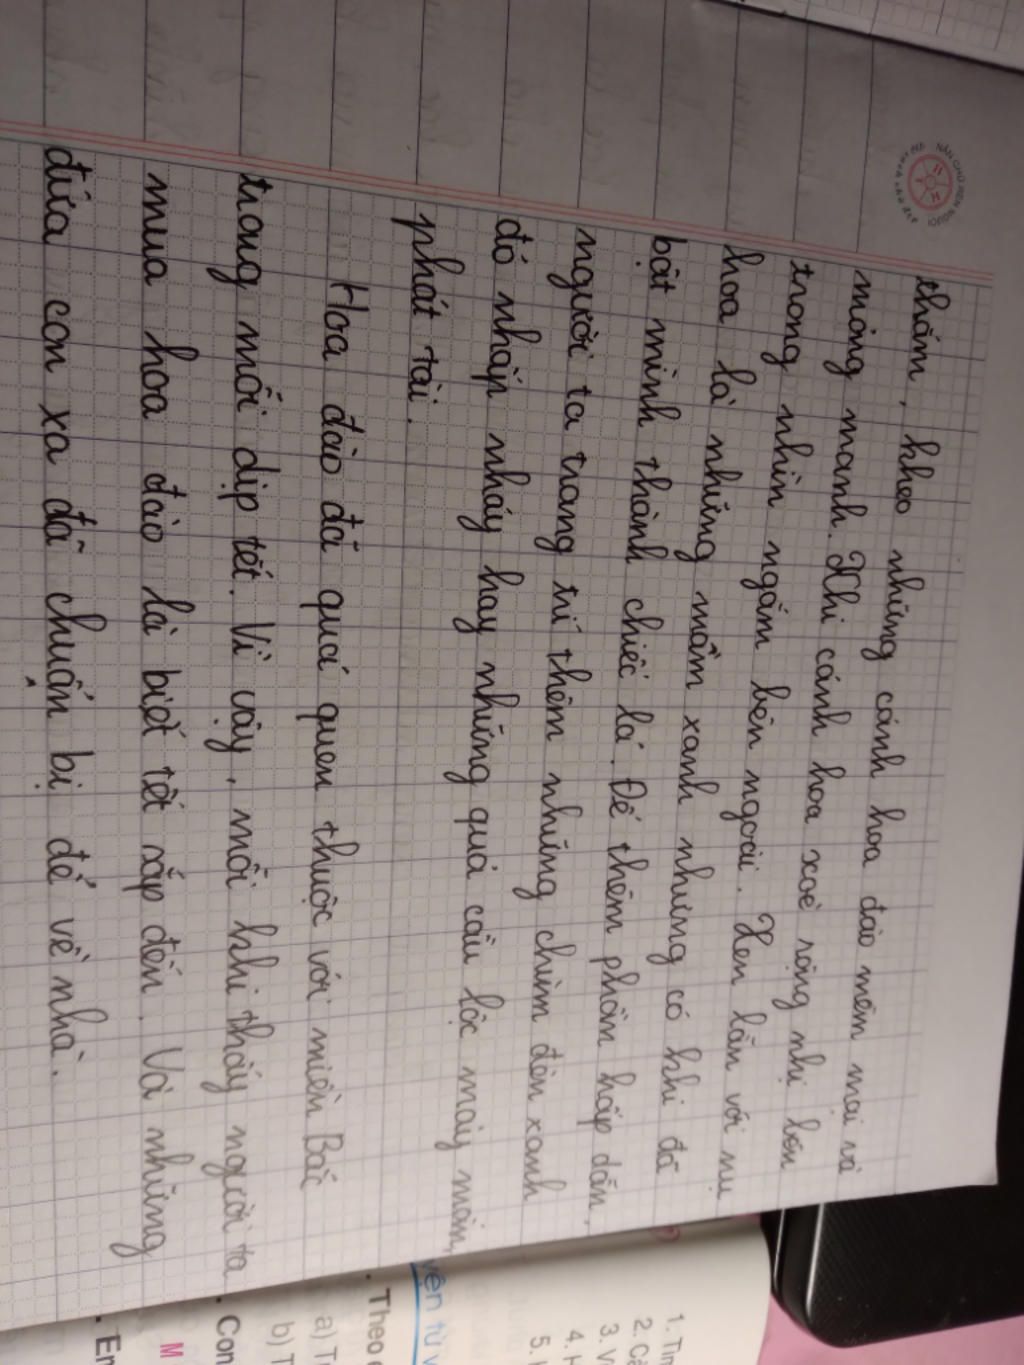 thắm, khoe những cánh hoa đào mềm mại và
mỏng manh. Khi cánh hoa xoè rộng nhị bên
trong nhìn ngắm bên ngoài. Xen lẫn với nụ
hoa là những mầm xanh nhưng có khi đã
bật mình thành chiếc lá. Để thêm phần hấp dẫn,
người ta trang trí thêm những chùm đèn xanh
đỏ nhấp nháy hay những quả cầu lộc may mắn,
phát tài.
Hoa đào đã quá quen thuộc với miền Bắc
trong mỗi dịp tết. Vì vậy, mỗi khi thấy người ta
mua hoa đào là biết tết sắp đến. Và những
đứa con xa đã chuẩn bị để về nhà.
1. Tìm
2.
3. V
4. H
5.
yện từ v
. Theo
a) T
b) T
. Con
M
. Em